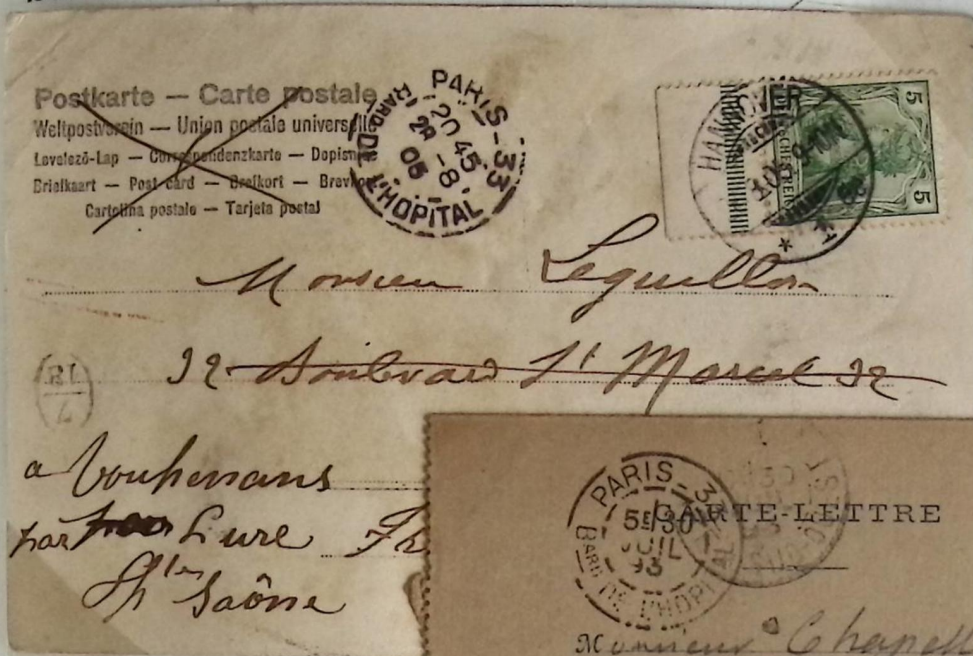 Postkarte — Carte postale
Weltpostverein — Union postale universelle
Levelező-Lap — Correspondenzkarte — Dopisnice
Briefkaart — Post card — Brefkort — Brevkort
Cartolina postale — Tarjeta postal
PARIS - 33
20 45
28 - 8
05
BARD DE L'HOPITAL
HANNOVER
5
5
Monsieur Leguillon
92 Boulevard St Marcel 92
a Vouhenans
par Lure Fr
Hte Saône
PARIS - 33
5E 30
JUIL
93
BARD DE L'HOPITAL
CARTE-LETTRE
Monsieur Chapell